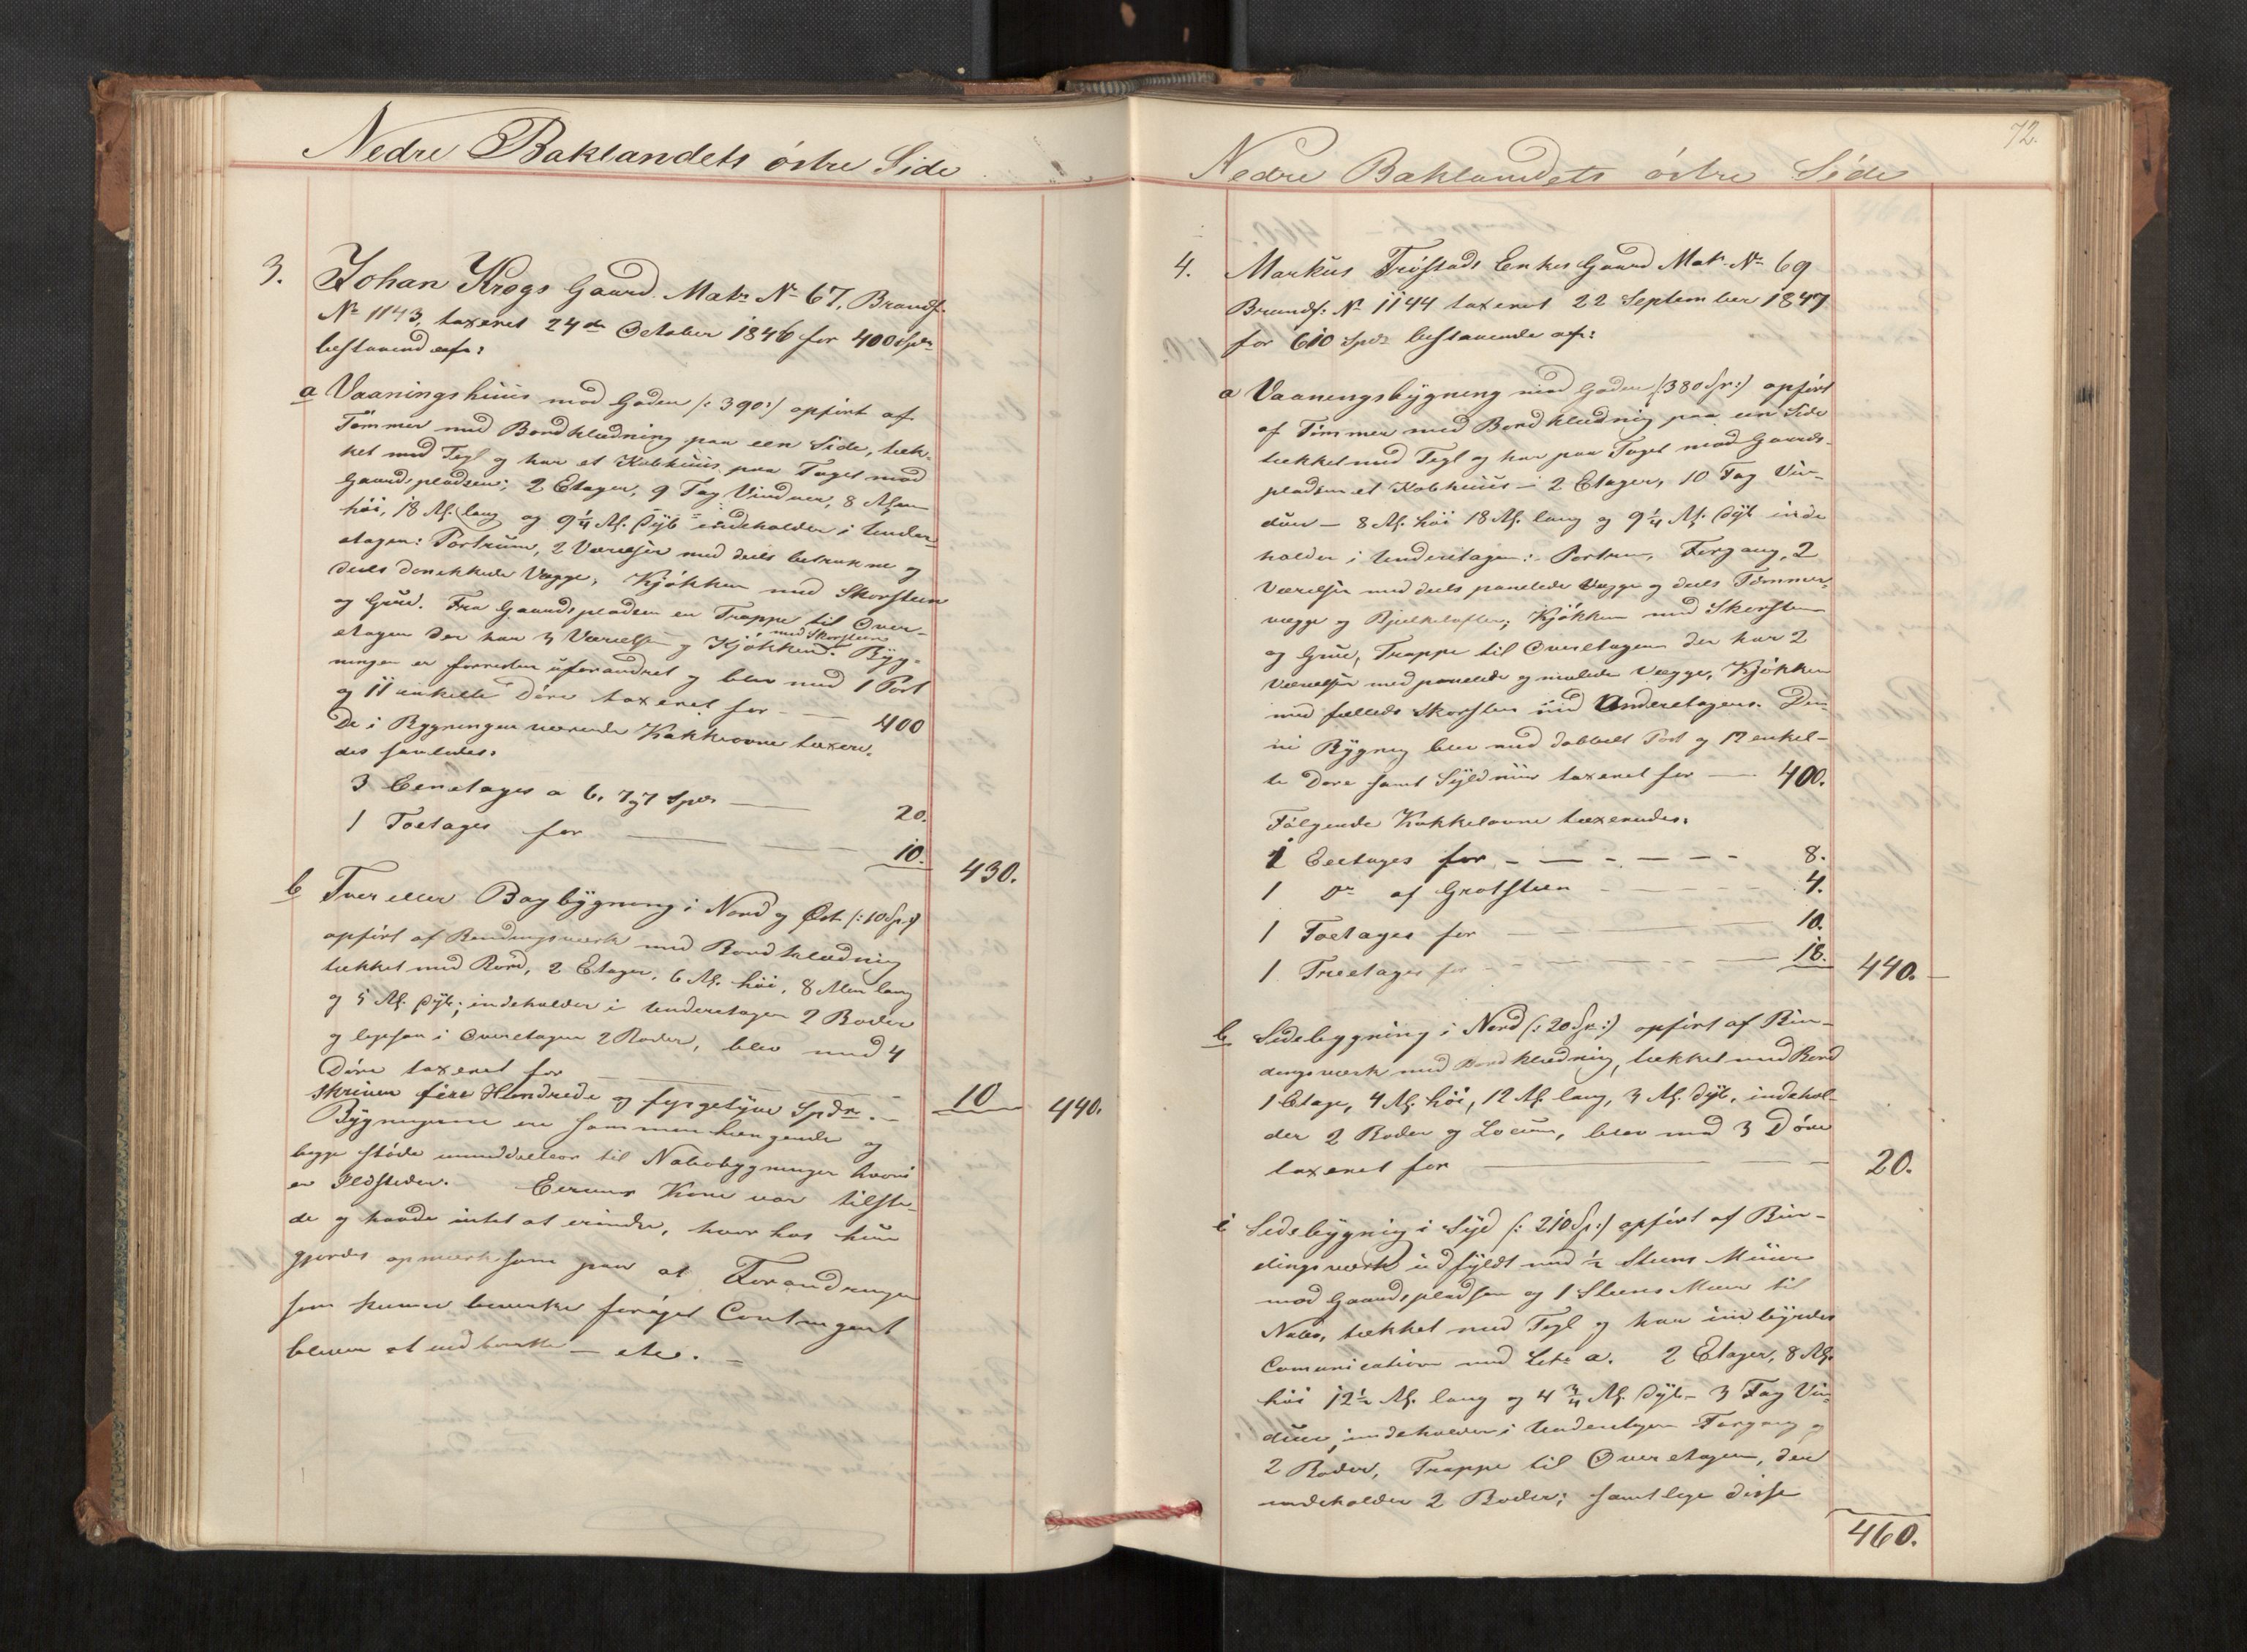 Nedre Baklandets östre Side
3. Johan Krogs Gaard. Matr. No 67, Brandf.
No 1143, taxeret 24de October 1846 for 400 Spdr
bestaaend af:
a Vaaningshuus mod Gaden /: 390 :/ opfört af
Tömmer med Bordklædning paa een Side, tæk-
ket med Tegl og har et Kobhuus paa Taget mod
Gaardspladsen; 2 Etager, 9 Fag Vinduer, 8 Alen
höi, 18 Al. lang og 9 1/4 Al. dyb indeholder i Under-
etagen: Portrum, 2 Værelser med deels betrukne og
deels Vægge, Kjökken med Skorsteen
og Grue. Fra Gaardspladsen en Trappe til Over-
etagen der har 3 Værelser og Kjökken med Skorsteen. Byg-
ningen er forresten uforandret og blev med 1 Port
og 11 enkelte Döre taxeret for — 400
De i Bygningen værende Kakkelovne taxere-
des saaledes:
3 Eenetages a 6, 7 og 7 Spdr — 20.
1 Toetages for — 10. 430.
b Tver eller Bagbygning i Nord og Öst /: 10 Sp. :/
opfört af Bindingsværk med Bordklædning
tækket med Bord, 2 Etager, 6 Al. höi, 8 Alen lang
og 5 Al. dyb; indeholder i Underetagen 2 Boder
og ligesaa i Overetagen 2 Boder, blev med 4
Döre taxeret for — 10 440.
skriver fire Hundrede og fyrgetyve Spdr. —
Bygningerne ere sammenhængende og
begge stöde umiddelbar til Nabobygninger hvori
er Ildsteder. Eierens Kone var tilste-
de og havde intet at erindre, hvorhos hun
gjordes opmærksom paa at Forandringer
som kunne bevirke foröget Contingent
bliver at indberette — etc. —
72.
Nedre Baklandets östre Side
4. Markus Tröstads Enkes Gaard Matr. No 69
Brandf. No 1144 taxeret 22 September 1847
for 610 Spdr bestaaende af:
a Vaaningsbygning mod Gaden /: 380 Sp. :/ opfört
af Tömmer med Bordklædning paa een Side
tækket med Tegl og har paa Taget mod Gaards-
pladsen et Kobhuus — 2 Etager, 10 Fag Vin-
duer — 8 Al. höi 18 Al. lang og 9 1/4 Al. dyb inde-
holder i Underetagen: Portrum, Forgang, 2
Værelser med deels panelede Vægge og deels Tömmer-
vægge og Bjelkelofter, Kjökken med Skorsteen
og Grue, Trappe til Overetagen der har 2
Værelser med panelede og malede Vægge, Kjökken
med fælleds Skorsten med Underetagens. Den-
ne Bygning blev med dobbelt Port og 12 enkel-
te Döre samt Syldmuur taxeret for — 400.
Fölgende Kakkelovne taxeredes:
1 Eetages for — 8.
1 Do af Grotsteen — 4.
1 Toetages for — 10.
1 Treetages for — 18. 440.
b Sidebygning i Nord /: 20 Sp. :/ opfört af Bin-
dingsværk med Bordklædning, tækket med Bord
1 Etage, 4 Al. höi, 12 Al. lang, 3 Al. dyb, indehol-
der 2 Boder og Locum, blev med 3 Döre
taxeret for — 20.
c Sidebygning i Syd /: 210 Sp. :/ opfört af Bin-
dingsværk udfyldt med 1/2 Steens Muur
mod Gaardspladsen og 1 Steens Muur til
Nabo, tækket med Tegl og har indbyrdes
Comunication med Litr a. 2 Etager, 8 Al.
höi 12 1/2 Al. lang og 4 3/4 Al. dyb — 3 Fag Vin-
duer, indeholder i Underetagen Forgang og
2 Boder, Trappe til Overetagen, der
indeholder 2 Boder; samtlige disse
460.